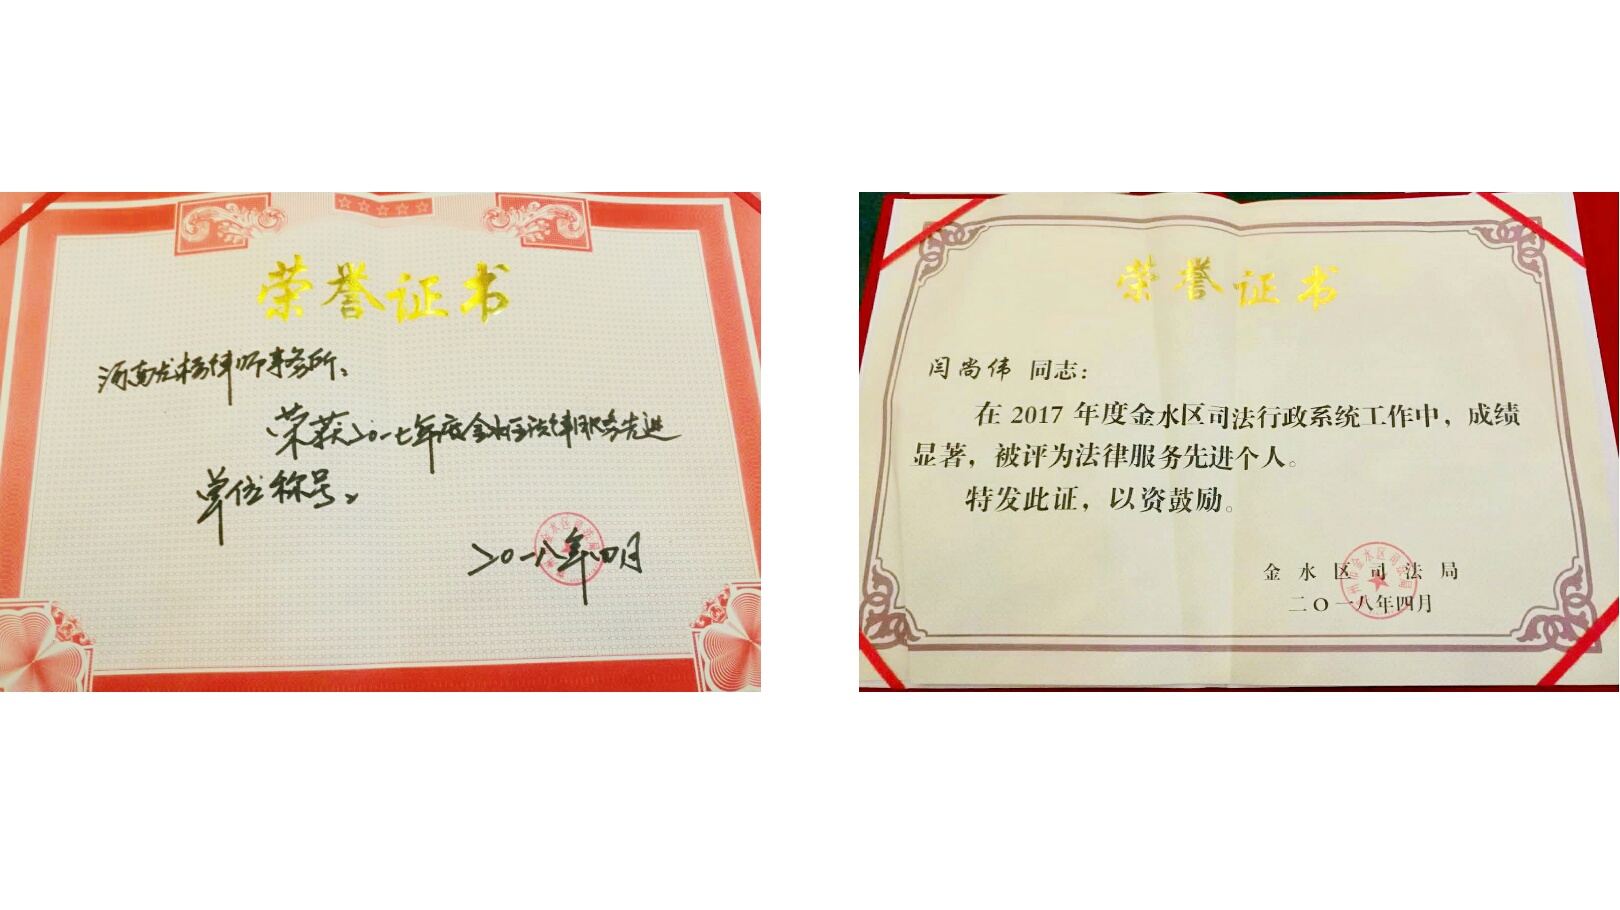 荣誉证书
河南龙杨律师事务所:
荣获二〇一七年度金水区法律服务先进
单位称号。
二〇一八年四月
荣誉证书
闫尚伟 同志：
在 2017 年度金水区司法行政系统工作中，成绩
显著，被评为法律服务先进个人。
特发此证，以资鼓励。
金水区司法局
二〇一八年四月